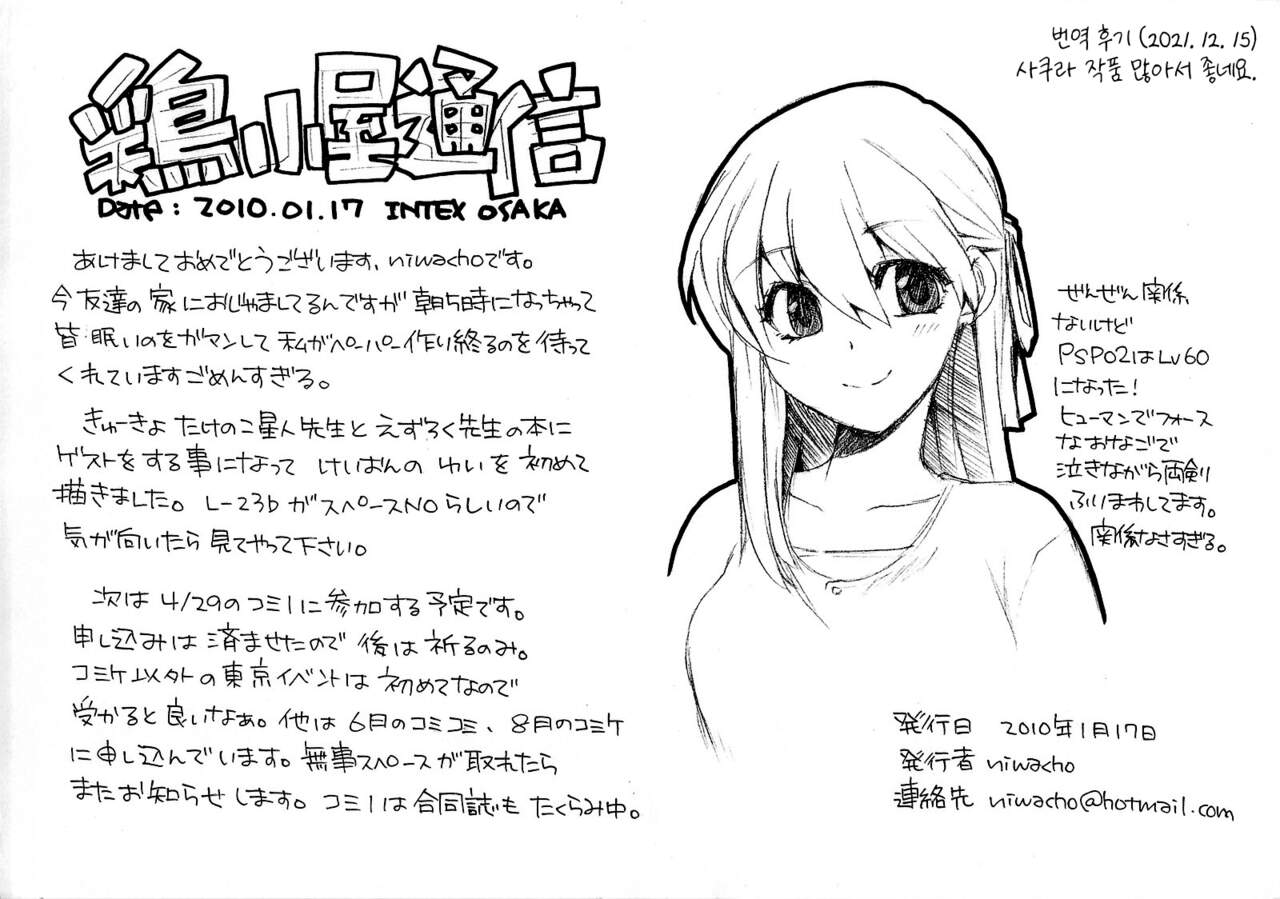 鶏小屋通信
Date : 2010.01.17 INTEX OSAKA
あけましておめでとうございます、niwachoです。
今友達の家におじゃましてるんですが朝5時になっちゃって
皆眠いのをガマンして私がペーパー作り終るのを待って
くれていますごめんすぎる。
きゅーきょたけのこ星人先生とえずろく先生の本に
ゲストをする事になってけいおんのゆいを初めて
描きました。L-23bがスペースNOらしいので
気が向いたら見てやって下さい。
次は4/29のコミ1に参加する予定です。
申し込みは済ませたので後は祈るのみ。
コミケ以外の東京イベントは初めてなので
受かると良いなぁ。他は6月のコミコミ、8月のコミケ
に申し込んでいます。無事スペースが取れたら
またお知らせします。コミ1は合同誌もたくらみ中。
번역 후기 (2021. 12. 15)
사쿠라 작품 많아서 좋네요.
ぜんぜん関係
ないけど
PSPO2はLv60
になった！
ヒューマンでフォース
なおなごで
泣きながら両剣
ふりまわしてます。
関係なさすぎる。
発行日 2010年1月17日
発行者 niwacho
連絡先 niwacho@hotmail.com